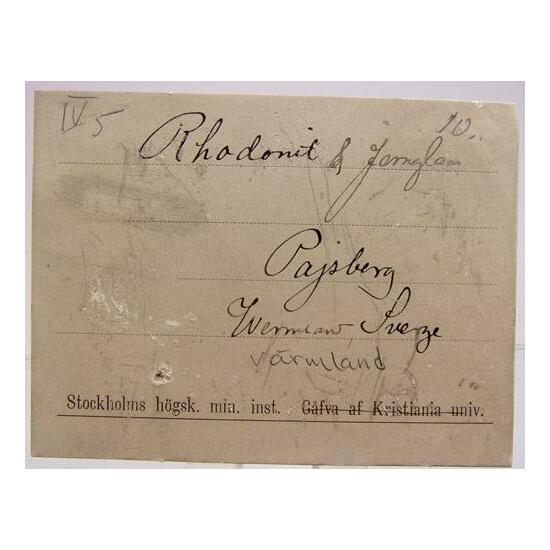 IV 5
10.
Rhodonit & Jernglans
Pajsberg
Wermland, Sverge
Värmland
Stockholms högsk. min. inst. Gåfva af Kristiania univ.